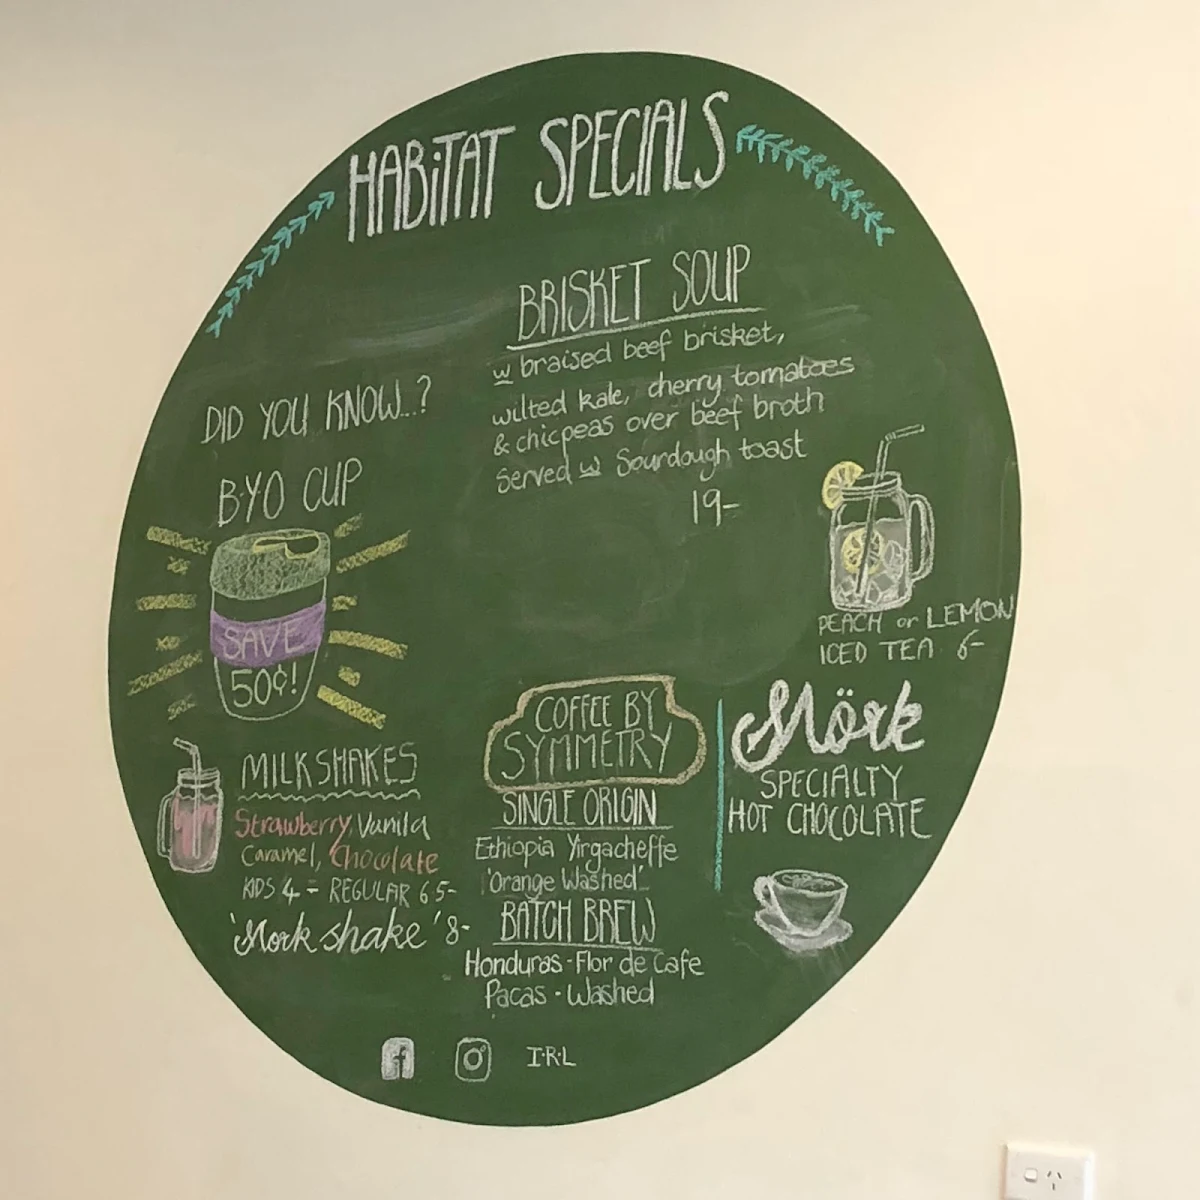 HABiTAT SPECIALS
BRISKET SOUP
w braised beef brisket,
wilted kale, cherry tomatoes
& chicpeas over beef broth
Served w Sourdough toast
19-
DID YOU KNOW...?
B·YO CUP
SAVE
50¢!
PEACH or LEMON
ICED TEA 6-
MILKSHAKES
Strawberry, Vanila
Caramel, Chocolate
KIDS 4 - REGULAR 6 5-
'Mork shake' 8-
COFFEE BY
SYMMETRY
SINGLE ORIGIN
Ethiopia Yirgacheffe
'Orange Washed'
BATCH BREW
Honduras - Flor de Cafe
Pacas - Washed
Mörk
SPECIALTY
HOT CHOCOLATE
f
I·R·L